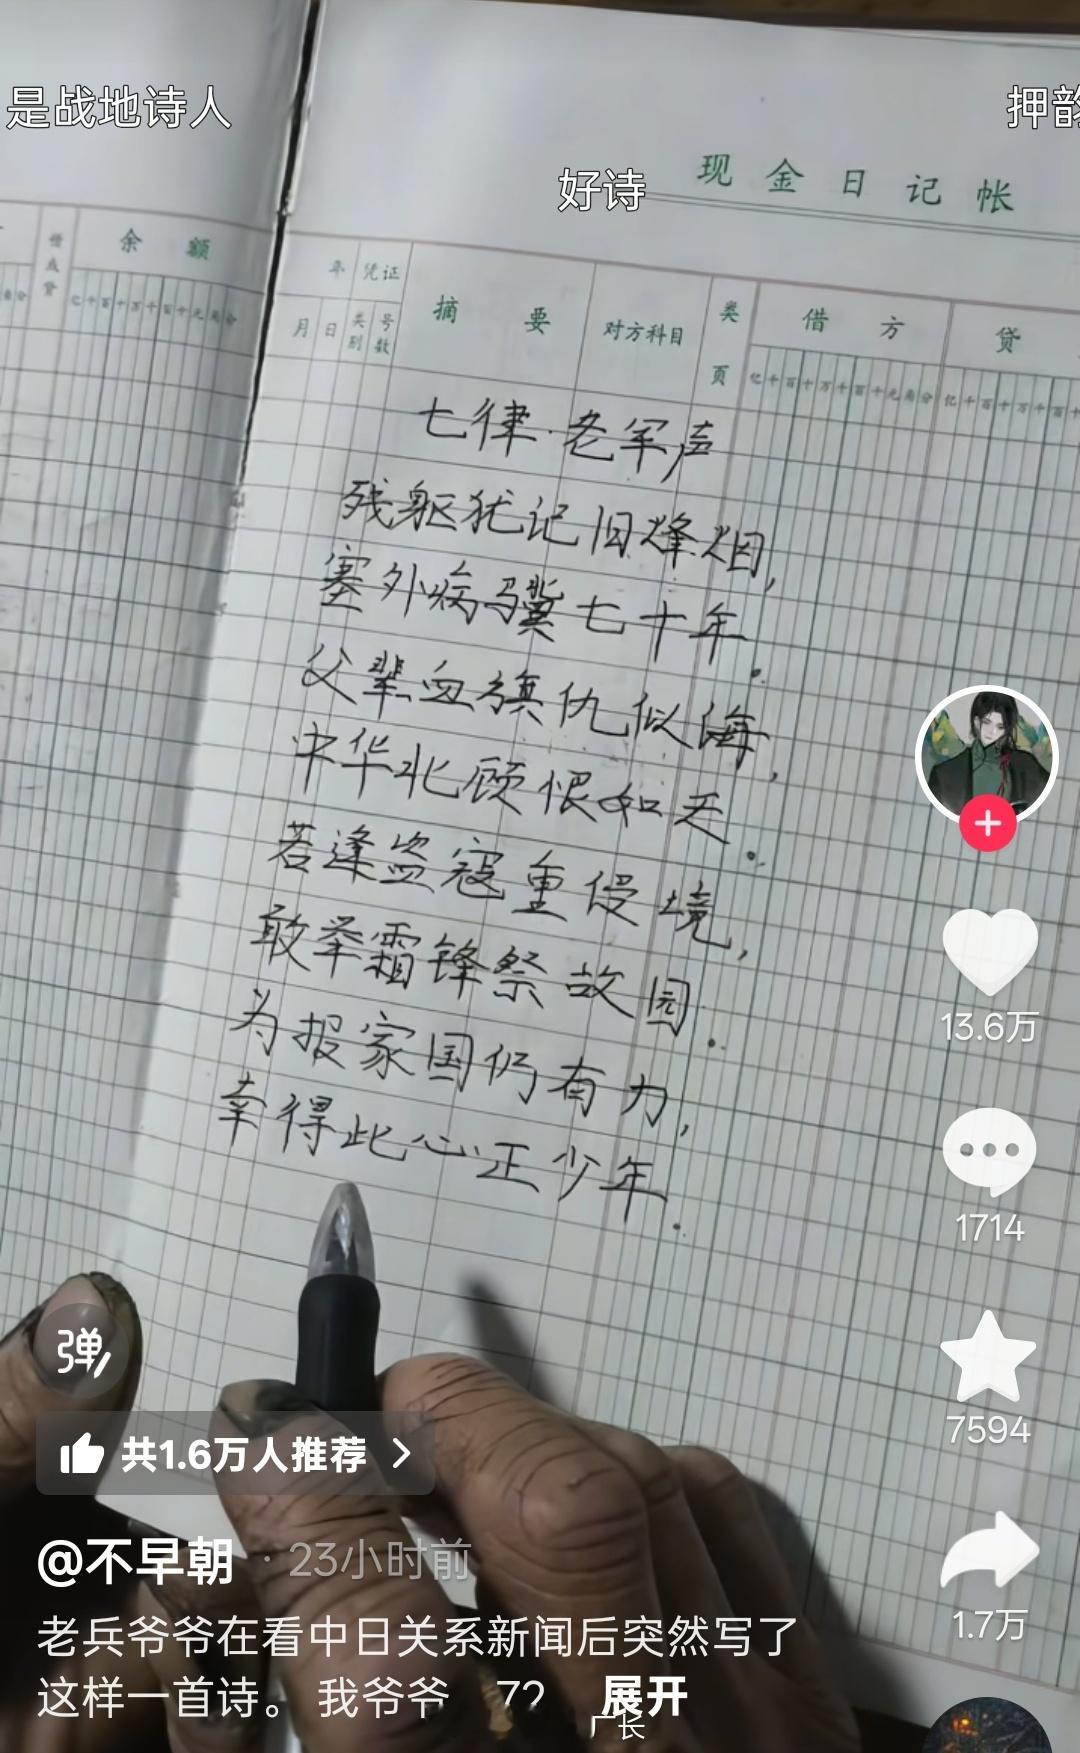 是战地诗人
押韵
好诗
现金日记帐
余额
借或贷
年
凭证
摘要
对方科目
类页
借方
贷
月
日
类别
号数
亿千百十万千百十元角分
七律·老军声
残躯犹记旧烽烟,
塞外病骥七十年.
父辈血旗仇似海,
中华北顾恨如天.
若逢盗寇重侵境,
敢举霜锋祭故园.
为报家国仍有力,
幸得此心正少年.
13.6万
1714
7594
1.7万
弹
共1.6万人推荐
@不早朝 · 23小时前
老兵爷爷在看中日关系新闻后突然写了
这样一首诗。 我爷爷 72 展开
厂长